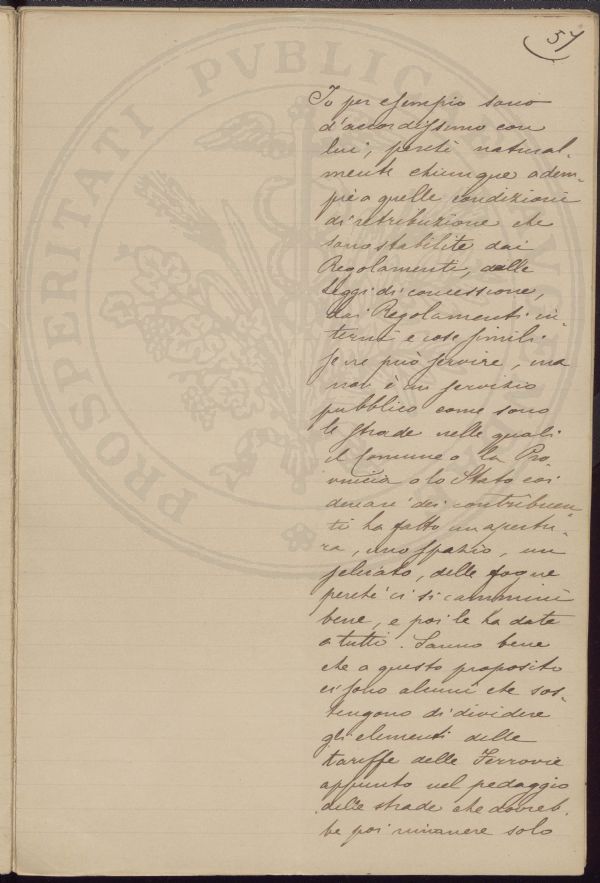 57
Io per esempio sono
d'accordissimo con
lui, perchè natural-
mente chiunque adem-
pie a quelle condizioni
di retribuzione che
sono stabilite dai
Regolamenti, dalle
leggi di concessione,
dai Regolamenti in-
terni e cose simili
se ne può servire, ma
non è un servizio
pubblico come sono
le strade nelle quali
il Comune o la Pro
vincia o lo Stato coi
denari dei contribuen-
ti ha fatto un'apertu-
ra, uno spazio, un
selciato, delle fogne
perchè ci si cammini
bene, e poi le ha date
a tutti. Sanno bene
che a questo proposito
ci sono alcuni che sos-
tengono di dividere
gli elementi delle
tariffe delle Ferrovie
appunto nel pedaggio
delle strade che dovreb-
be poi rimanere solo
PROSPERITATI PVBLICAE